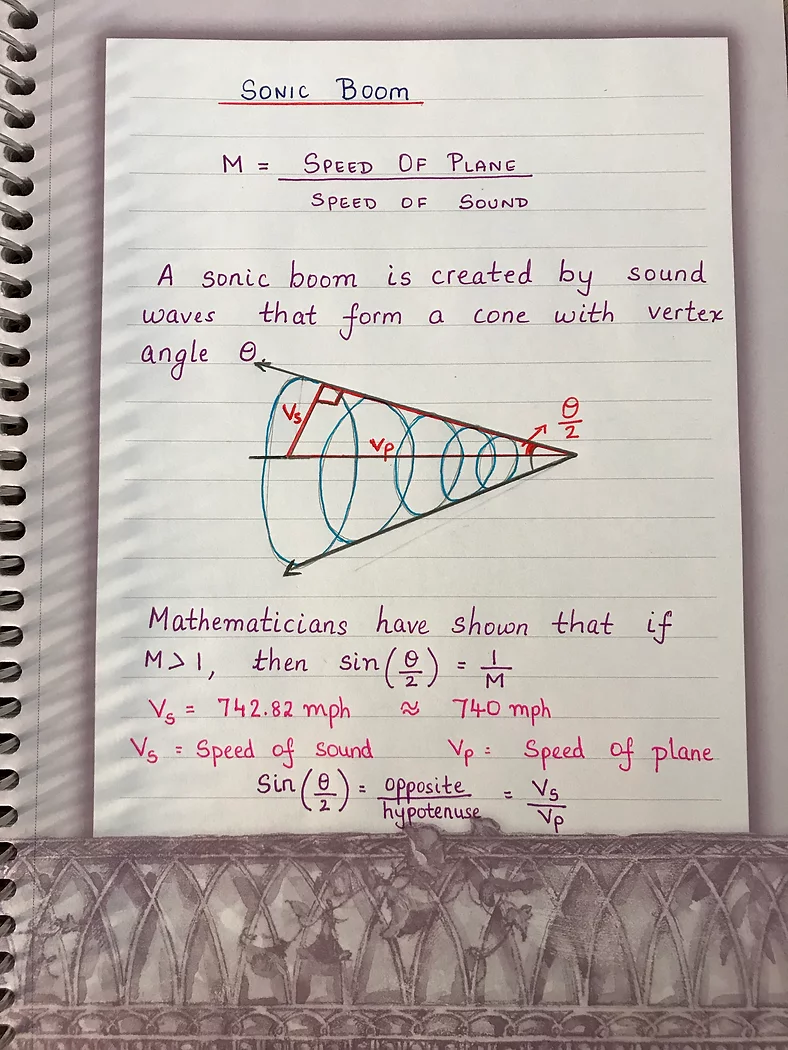 SONIC BOOM
M = SPEED OF PLANE
SPEED OF SOUND
A sonic boom is created by sound
waves that form a cone with vertex
angle θ.
Vs
Vp
θ
2
Mathematicians have shown that if
M > 1, then sin(θ/2) = 1/M
Vs = 742.82 mph ≈ 740 mph
Vs = Speed of sound Vp = Speed of plane
Sin(θ/2) = opposite/hypotenuse = Vs/Vp